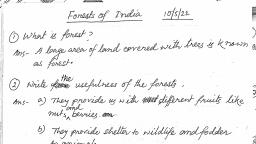 Forests of India 10/5/22
① What is forest?
Ans- A large area of land covered with trees is known
as forest.
② Write the usefulness of the forests.
Ans- a) They provide us with different fruits like
nuts, and berries
b) They provide shelter to wildlife and fodder
to animals